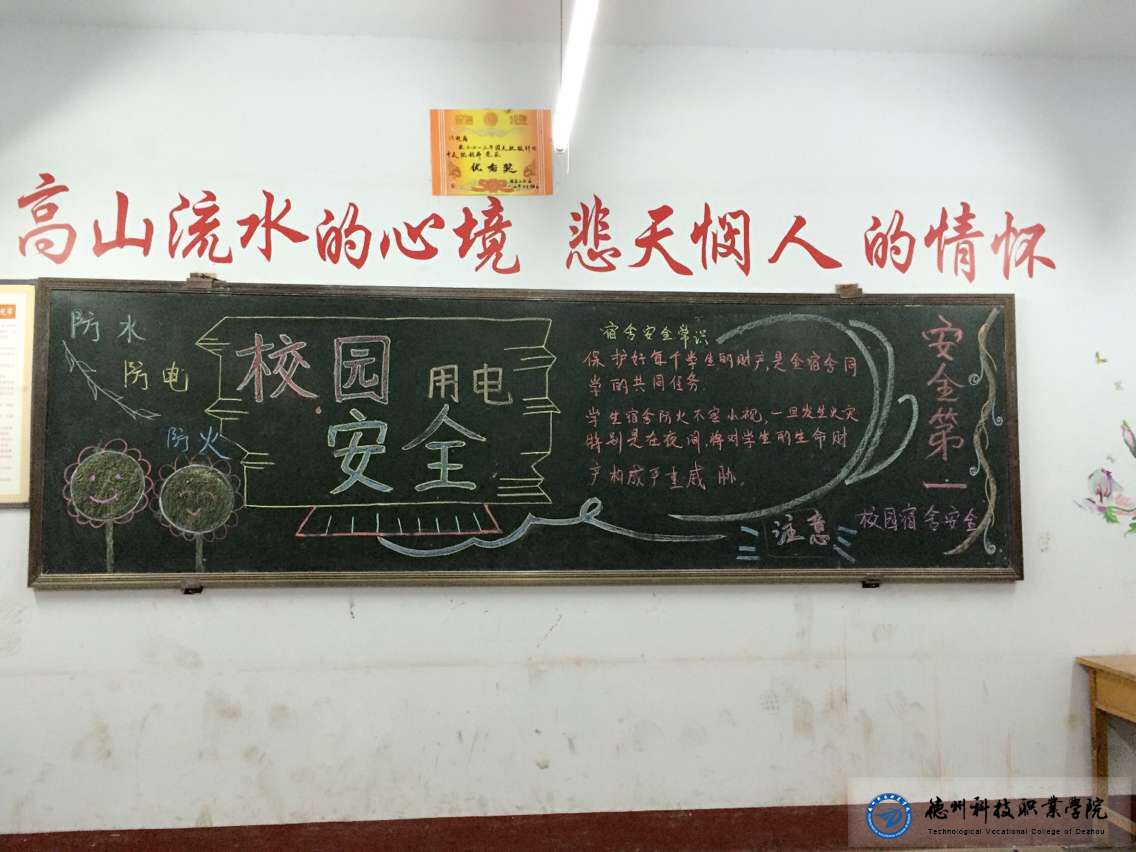 优秀奖
高山流水的心境 悲天悯人的情怀
防水
防电
防火
校园
用电
安全
宿舍安全常识
保护好每个学生的财产,是全宿舍同
学的共同任务.
学生宿舍防火不容小视,一旦发生火灾
特别是在夜间将对学生的生命财
产构成严重威胁。
注意
安全第一
校园宿舍安全
德州科技职业学院
Technological Vocational College of Dezhou